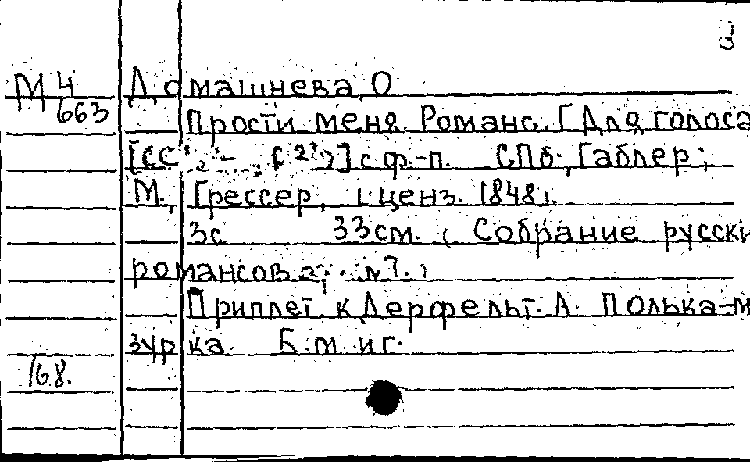 3
М 4
663
Домашнева, О
Прости меня. Романс. [Для голоса
с ф-п. СПб., Габлер;
М., Грессер, [ценз. 1848].
3с 33см. (Собрание русски
романсов №7.)
Приплет. к Дерфельт. А. Полька-м
зурка. Б.м. и г.
168.